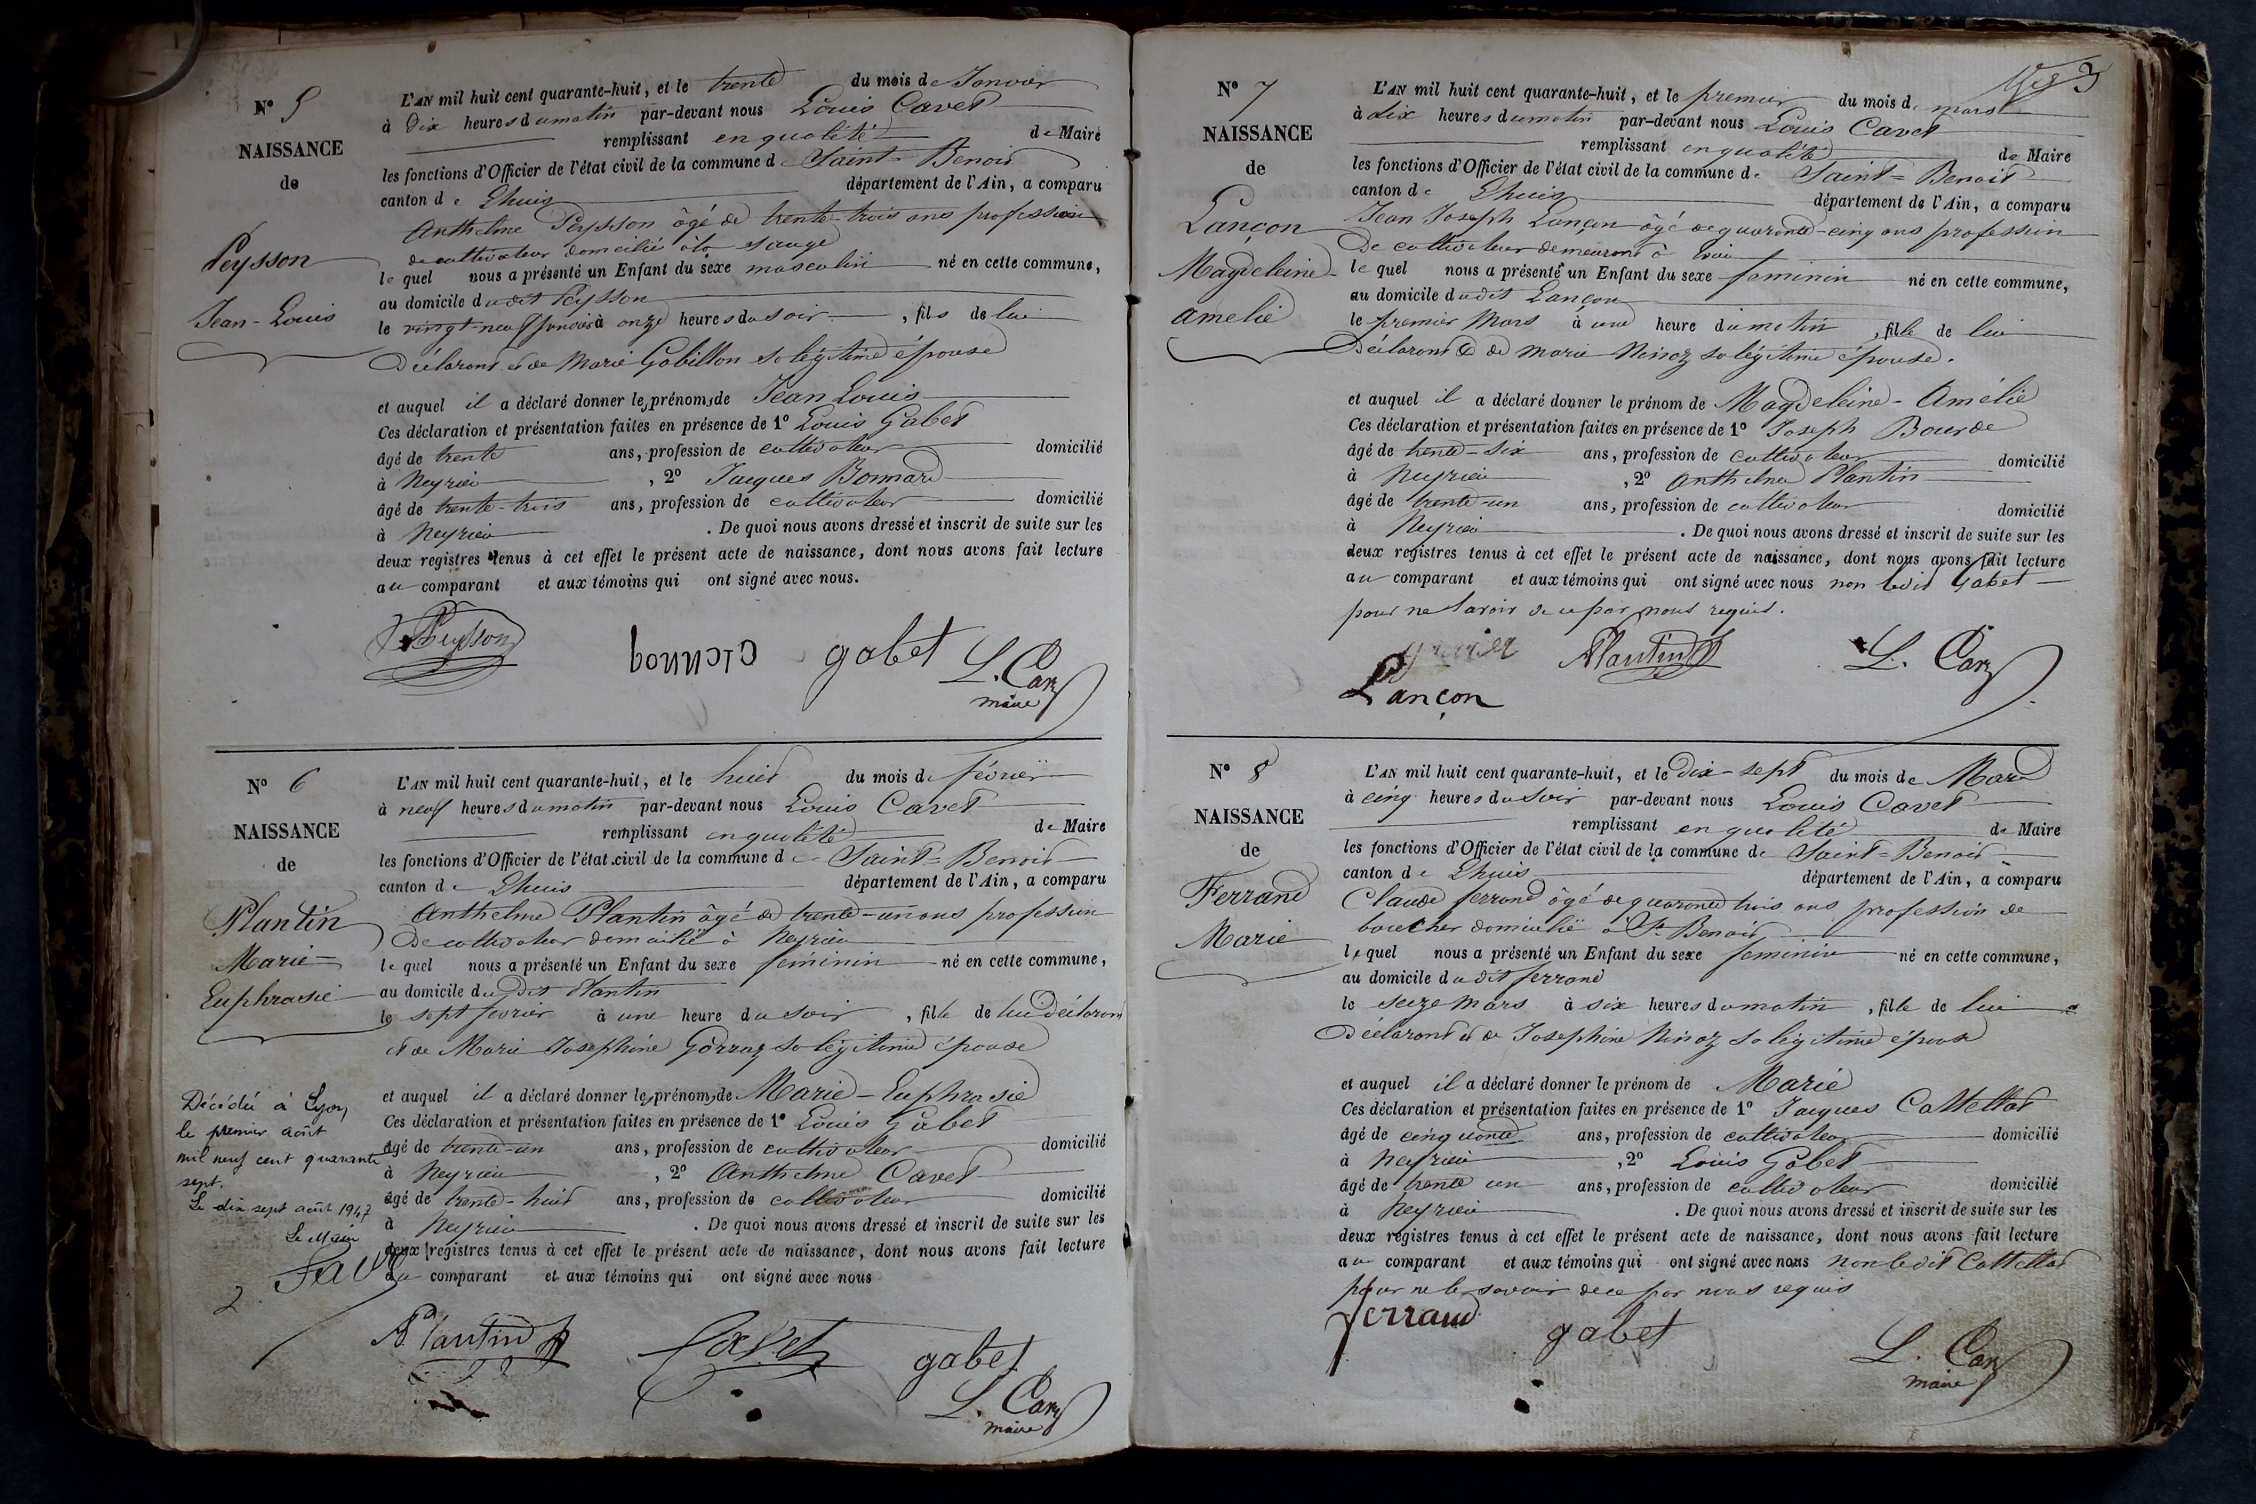 N° 5
NAISSANCE
de
Peysson
Jean-Louis
L'AN mil huit cent quarante-huit, et le trente du mois de Janvier
à Dix heures du matin par-devant nous Louis Cavet
remplissant en qualité de Maire
les fonctions d'Officier de l'état civil de la commune de Saint-Benoit
canton de Lhuis département de l'Ain, a comparu
Anthelme Peysson âgé de trente-trois ans profession
de cultivateur domicilié à la sauge
lequel nous a présenté un Enfant du sexe masculin né en cette commune,
au domicile dudit Peysson
le vingt-neuf janvier à onze heures du soir, fils de lui
Déclarant et de Marie Gobillon sa légitime épouse
et auquel il a déclaré donner les prénoms de Jean Louis
Ces déclaration et présentation faites en présence de 1° Louis Gabet
âgé de trente ans, profession de cultivateur domicilié
à Neyrieu, 2° Jacques Bonnard
âgé de trente-trois ans, profession de cultivateur domicilié
à Neyrieu. De quoi nous avons dressé et inscrit de suite sur les
deux registres tenus à cet effet le présent acte de naissance, dont nous avons fait lecture
au comparant et aux témoins qui ont signé avec nous.
Peysson gabet L. Cavet
maire
N° 6
NAISSANCE
de
Plantin
Marie-
Euphrasie
L'AN mil huit cent quarante-huit, et le huit du mois de février
à neuf heures du matin par-devant nous Louis Cavet
remplissant en qualité de Maire
les fonctions d'Officier de l'état civil de la commune de Saint-Benoit
canton de Lhuis département de l'Ain, a comparu
Anthelme Plantin âgé de trente-un ans profession
De cultivateur domicilié à Neyrieu
lequel nous a présenté un Enfant du sexe féminin né en cette commune,
au domicile du Dit Plantin
le sept fevrier à une heure du soir, fille de lui déclarant
et de Marie Josephine Gorraz sa légitime épouse
et auquel il a déclaré donner les prénoms de Marie-Euphrasie
Ces déclaration et présentation faites en présence de 1° Louis Gabet
âgé de trente-un ans, profession de cultivateur domicilié
à Neyrieu, 2° Anthelme Cavet
âgé de trente-huit ans, profession de cultivateur domicilié
à Neyrieu. De quoi nous avons dressé et inscrit de suite sur les
deux registres tenus à cet effet le présent acte de naissance, dont nous avons fait lecture
au comparant et aux témoins qui ont signé avec nous
Décédée à Lyon,
le premier août
mil neuf cent quarante
sept.
Le dix sept août 1947
Le Maire
2
A Plantin Cavet gabet
L. Cavet
maire
3
N° 7
NAISSANCE
de
Lançon
Magdeleine-
amelie
L'AN mil huit cent quarante-huit, et le premier du mois de mars
à dix heures du matin par-devant nous Louis Cavet
remplissant en qualité de Maire
les fonctions d'Officier de l'état civil de la commune de Saint-Benoit
canton de Lhuis département de l'Ain, a comparu
Jean Joseph Lançon âgé de quarante-cinq ans profession
De cultivateur demeurant à
lequel nous a présenté un Enfant du sexe feminin né en cette commune,
au domicile dudit Lançon
le premier Mars à une heure du matin, fille de lui
Déclarant & de marie Ninoz sa légitime épouse.
et auquel il a déclaré donner le prénom de Magdeleine-Amélie
Ces déclaration et présentation faites en présence de 1° Joseph Bourde
âgé de trente-six ans, profession de cultivateur domicilié
à Neyrieu, 2° Anthelme Plantin
âgé de trente-un ans, profession de cultivateur domicilié
à Neyrieu. De quoi nous avons dressé et inscrit de suite sur les
deux registres tenus à cet effet le présent acte de naissance, dont nous avons fait lecture
au comparant et aux témoins qui ont signé avec nous non ledit Gabet
pour ne savoir de ce par nous requis.
A Plantin L. Cavet
Lançon
N° 8
NAISSANCE
de
Ferrand
Marie
L'AN mil huit cent quarante-huit, et le Dix-sept du mois de Mars
à cinq heures du soir par-devant nous Louis Cavet
remplissant en qualité de Maire
les fonctions d'Officier de l'état civil de la commune de Saint-Benoit
canton de Lhuis département de l'Ain, a comparu
Claude ferrand âgé de quarante trois ans profession de
boucher domicilié à St Benoit
lequel nous a présenté un Enfant du sexe feminin né en cette commune,
au domicile dudit ferrand
le seize mars à six heures du matin, fille de lui
Déclarant et de Josephine Ninoz sa légitime épouse
et auquel il a déclaré donner le prénom de Marie
Ces déclaration et présentation faites en présence de 1° Jacques Cottettat
âgé de cinquante ans, profession de cultivateur domicilié
à Neyrieu, 2° Louis Gabet
âgé de trente un ans, profession de cultivateur domicilié
à Neyrieu. De quoi nous avons dressé et inscrit de suite sur les
deux registres tenus à cet effet le présent acte de naissance, dont nous avons fait lecture
au comparant et aux témoins qui ont signé avec nous non ledit Cottettat
pour ne le savoir de ce par nous requis
ferrand gabet L. Cavet
maire